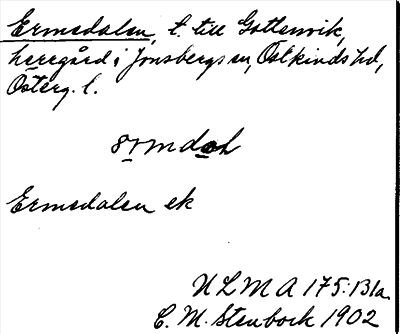 Ermedalen, t. till Gottenvik,
herregård i Jonsbergs sn, Östkinds hd,
Österg. l.
Ermedalen ek
ULMA 175:131a.
C. M. Stenbock 1902